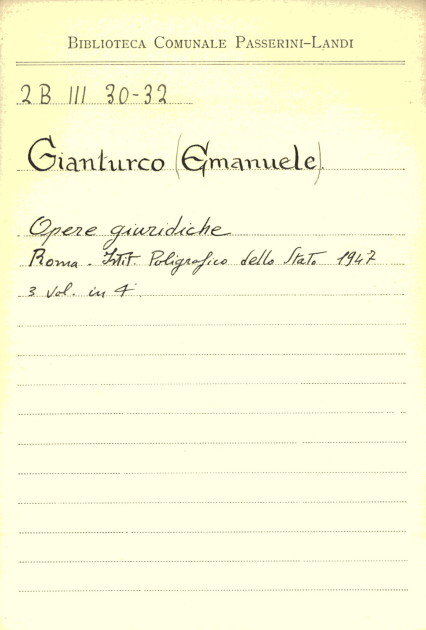 Biblioteca Comunale Passerini-Landi
2 B III 30-32
Gianturco (Emanuele).
Opere giuridiche
Roma - Istit. Poligrafico dello Stato 1947
3 vol. in 4°.